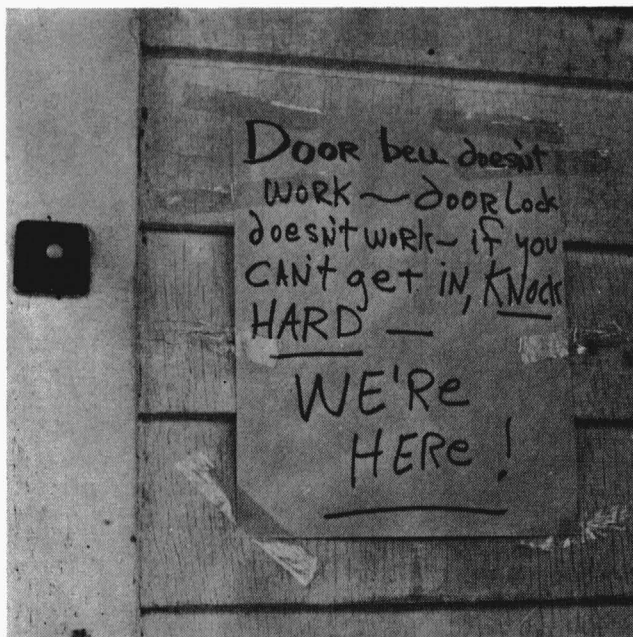 DOOR bell doesn't
WORK ~ dOOR Lock
doesn't WORK ~ if you
CAN'T get iN, KNock
HARD —
WE'Re
HERe!